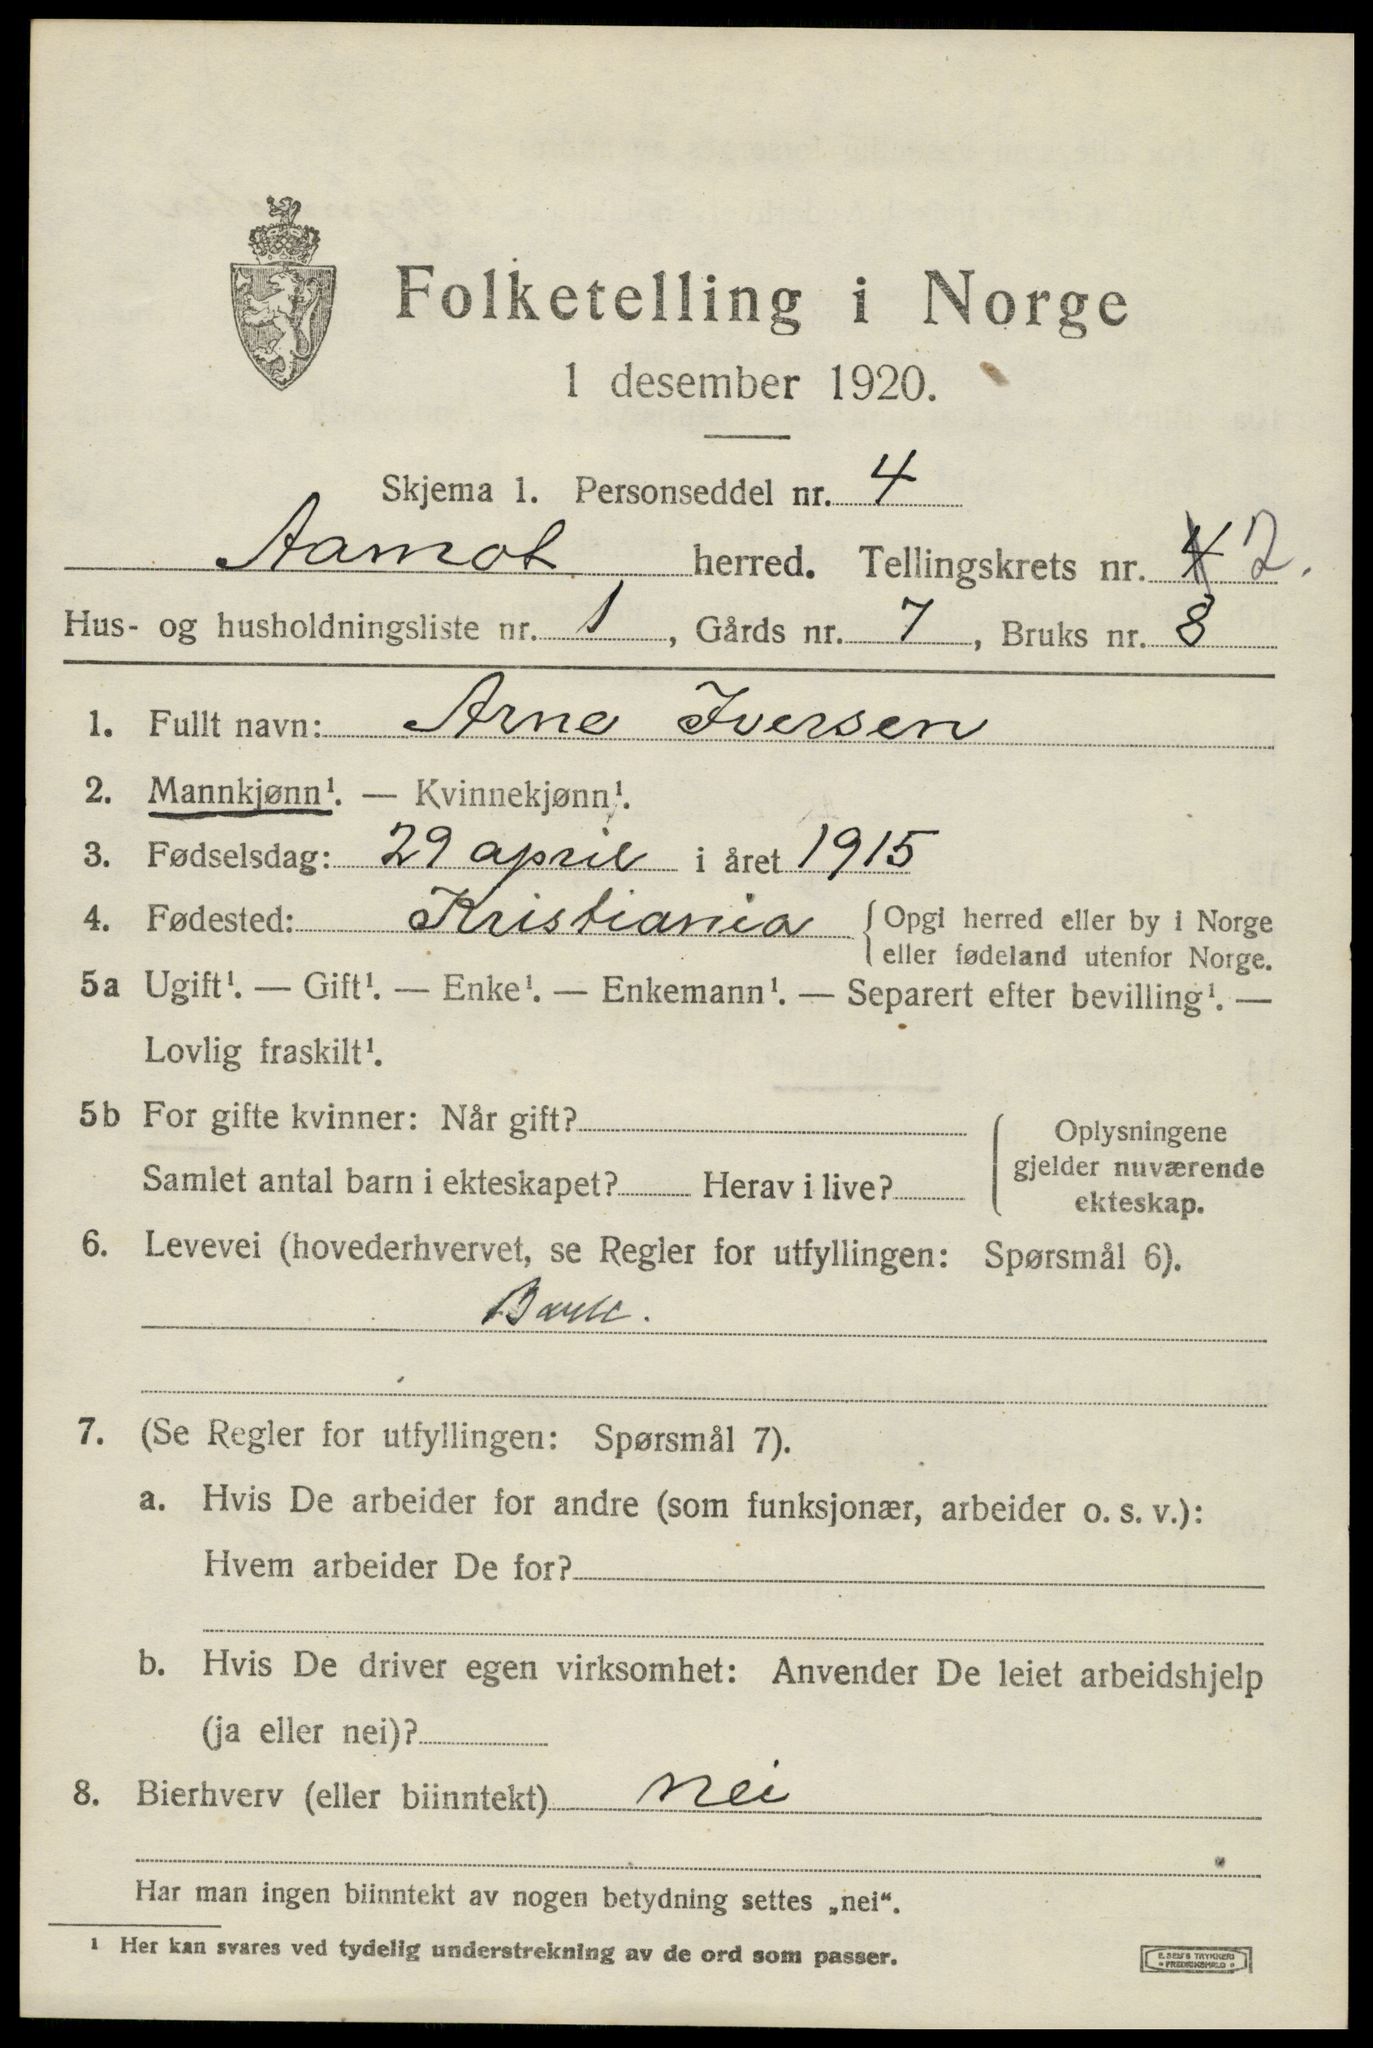 Folketelling i Norge
1 desember 1920.
Skjema 1. Personseddel nr. 4
Aamot herred. Tellingskrets nr. 4 2.
Hus- og husholdningsliste nr. 1, Gårds nr. 7, Bruks nr. 8
1. Fullt navn: Arne Iversen
2. Mannkjønn¹. — Kvinnekjønn¹.
3. Fødselsdag: 29 april i året 1915
4. Fødested: Kristiania {Opgi herred eller by i Norge
eller fødeland utenfor Norge.
5a Ugift¹. — Gift¹. — Enke¹. — Enkemann¹. — Separert efter bevilling¹. —
Lovlig fraskilt¹.
5b For gifte kvinner: Når gift?
Samlet antal barn i ekteskapet? Herav i live?
Oplysningene
gjelder nuværende
ekteskap.
6. Levevei (hovederhvervet, se Regler for utfyllingen: Spørsmål 6).
7. (Se Regler for utfyllingen: Spørsmål 7).
a. Hvis De arbeider for andre (som funksjonær, arbeider o. s. v.):
Hvem arbeider De for?
b. Hvis De driver egen virksomhet: Anvender De leiet arbeidshjelp
(ja eller nei)?
8. Bierhverv (eller biinntekt) nei
Har man ingen biinntekt av nogen betydning settes „nei“.
¹ Her kan svares ved tydelig understrekning av de ord som passer.
E. SEM'S TRYKKERI
FREDRIKSHALD